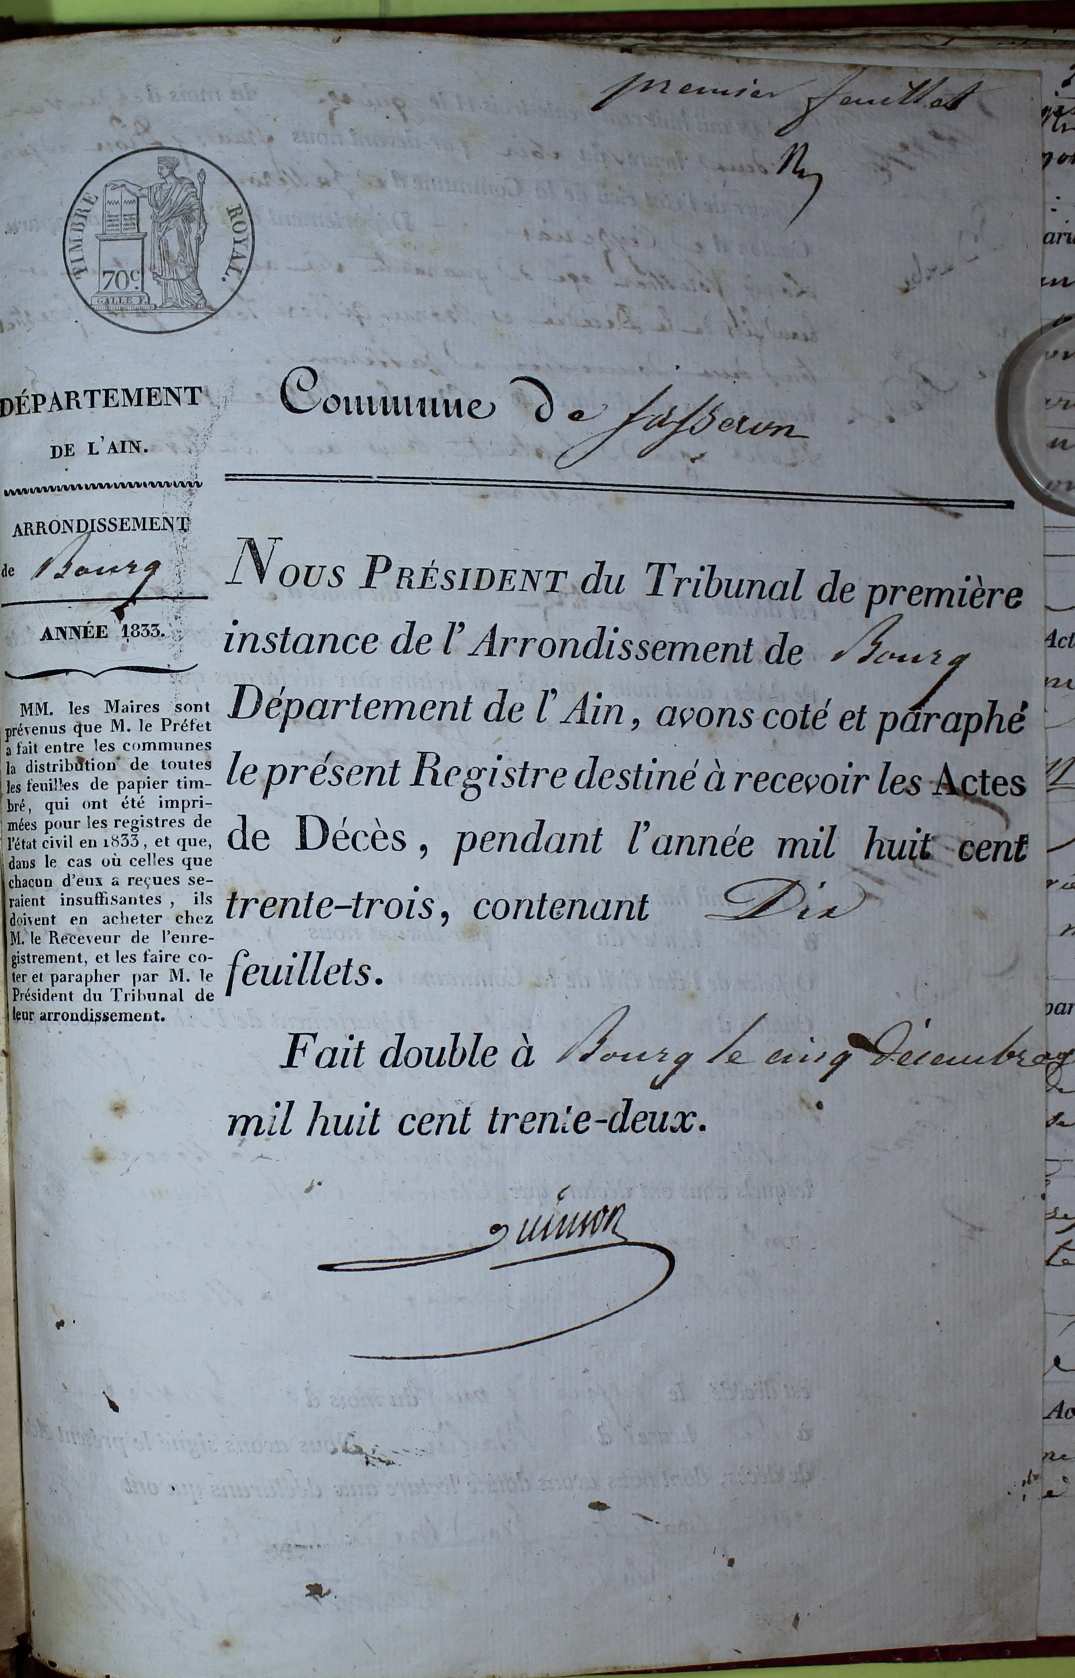 premier feuillet
TIMBRE ROYAL.
70c.
DÉPARTEMENT
DE L'AIN.
ARRONDISSEMENT
de Bourg
ANNÉE 1833.
MM. les Maires sont
prévenus que M. le Préfet
a fait entre les communes
la distribution de toutes
les feuilles de papier tim-
bré, qui ont été impri-
mées pour les registres de
l'état civil en 1833, et que,
dans le cas où celles que
chacun d'eux a reçues se-
raient insuffisantes, ils
doivent en acheter chez
M. le Receveur de l'enre-
gistrement, et les faire co-
ter et parapher par M. le
Président du Tribunal de
leur arrondissement.
Commune de Jasseron
NOUS PRÉSIDENT du Tribunal de première
instance de l'Arrondissement de Bourg
Département de l'Ain, avons coté et paraphé
le présent Registre destiné à recevoir les Actes
de Décès, pendant l'année mil huit cent
trente-trois, contenant Dix
feuillets.
Fait double à Bourg le cinq décembre
mil huit cent trente-deux.